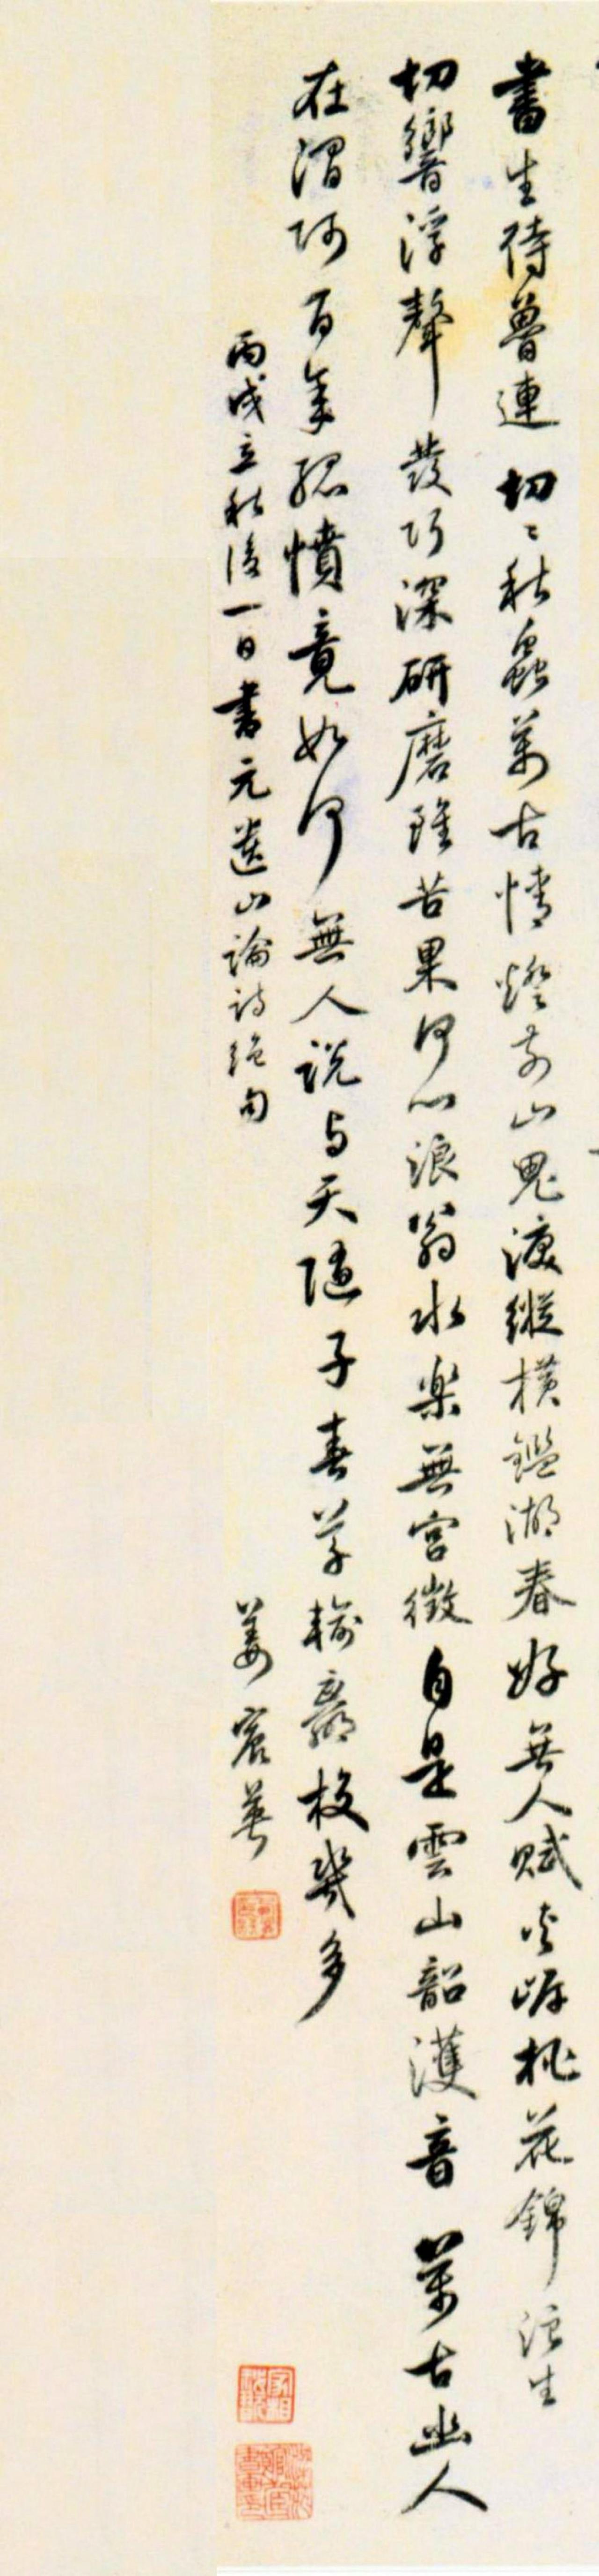 書生待魯連切〻秋蟲萬古情燈前山鬼淚縱橫鑑湖春好無人賦夾岸桃花錦浪生
切響浮聲發巧深研磨雖苦果何心浪翁水楽無宮徵自是雲山韶濩音萬古幽人
在澗阿百年孤憤竟如何無人説与天隨子春草輸贏校幾多
丙戌立秋後一日書元遺山論詩絕句
姜宸英